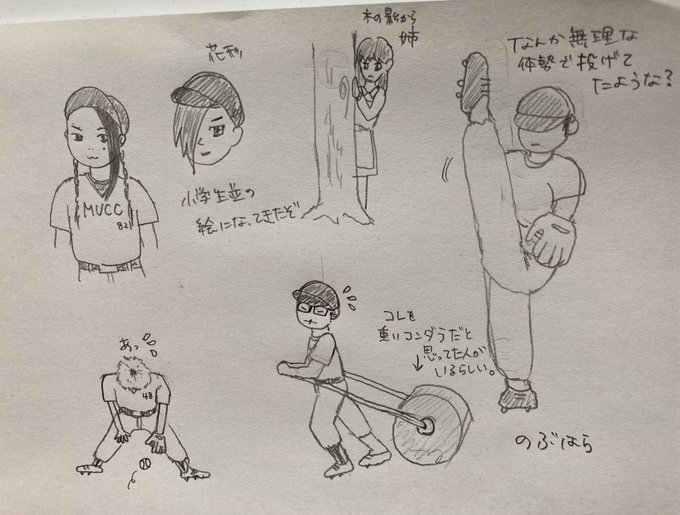 花形
木の影から
姉
なんか無理な
体勢で投げて
たような?
MUCC
82
小学生並の
絵になってきたぞ
あっ
48
コレを
重いコンダラだと
思ってた人が
いるらしい。
のぶはら